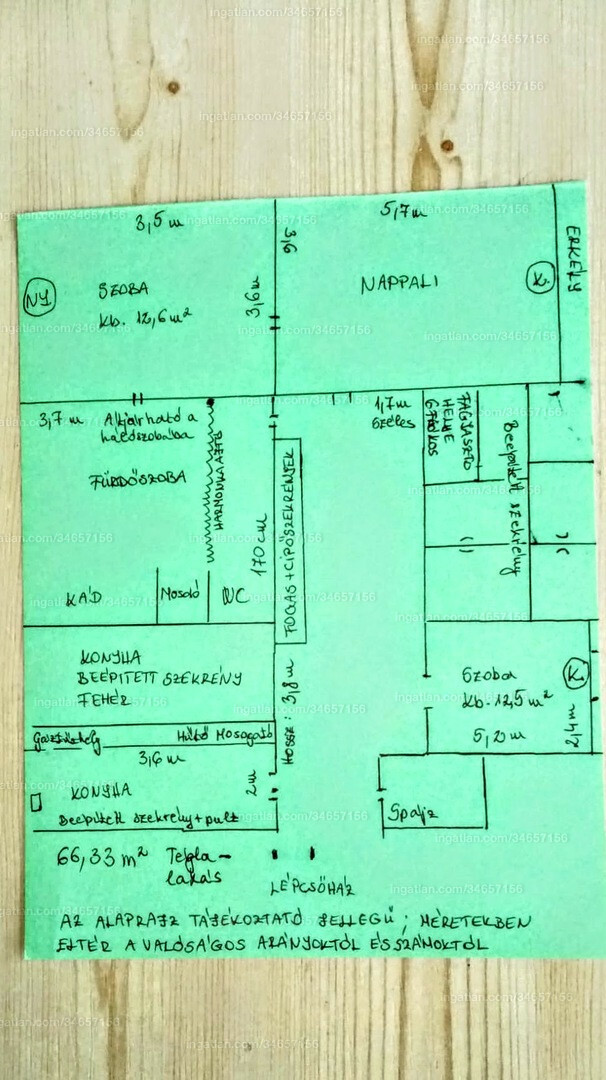 3,5 m
3,6
5,7m
ERKÉLY
NY
SZOBA
kb. 12,6 m²
3,6m
NAPPALI
K.
3,7 m
Átjárható a
hálószobába
1,7m
széles
FÜRDŐSZOBA
HARMONIKAAJTÓ
170 cm
FOGAS + CIPŐSZEKRÉNYEK
Beépített szekrény
KÁD
Mosdó
WC
KONYHA
BEÉPITETT SZEKRÉNY
FEHÉR
HOSSZ: 3,8 m
Szoba
K.
kb. 12,5 m²
5,20 m
Gáztűzhely
Hűtő Mosogató
3,6 m
2m
KONYHA
Beépített szekrény + pult
Spájz
66,33 m² Tégla-
lakás
LÉPCSŐHÁZ
AZ ALAPRAJZ TÁJÉKOZTATÓ JELLEGŰ; MÉRETEKBEN
ELTÉR A VALÓSÁGOS ARÁNYOKTÓL ÉS SZÁMOKTÓL
ingatlan.com/34657156